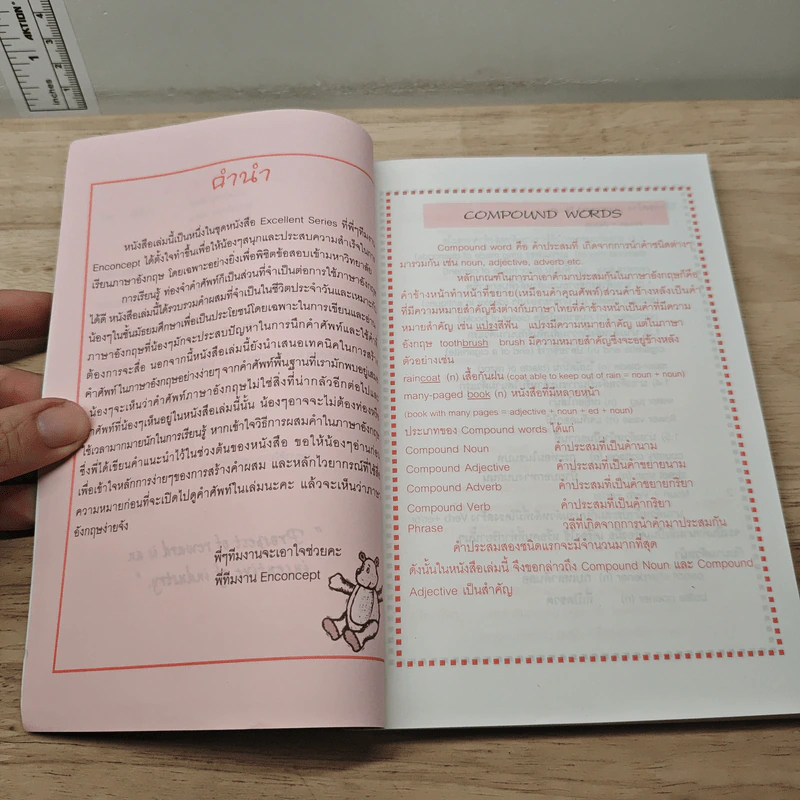 คำนำ
หนังสือเล่มนี้เป็นหนึ่งในชุดหนังสือ Excellent Series ที่พี่ๆทีมงาน
Enconcept ได้ตั้งใจทำขึ้นเพื่อให้น้องๆสนุกและประสบความสำเร็จในการ
เรียนภาษาอังกฤษ โดยเฉพาะอย่างยิ่งเพื่อพิชิตข้อสอบเข้ามหาวิทยาลัย
การเรียนรู้ ท่องจำคำศัพท์ก็เป็นส่วนที่จำเป็นต่อการใช้ภาษาอังกฤษ
ได้ดี หนังสือเล่มนี้ได้รวบรวมคำผสมที่จำเป็นในชีวิตประจำวันและเหมาะกับ
น้องๆในชั้นมัธยมศึกษาเพื่อเป็นประโยชน์โดยเฉพาะในการเขียนและอ่าน
ภาษาอังกฤษที่น้องๆมักจะประสบปัญหาในการนึกคำศัพท์และใช้คำที่
ต้องการจะสื่อ นอกจากนี้หนังสือเล่มนี้ยังนำเสนอเทคนิคในการสร้าง
คำศัพท์ในภาษาอังกฤษอย่างง่ายๆ จากคำศัพท์พื้นฐานที่เรามักพบอยู่เสมอ
น้องๆจะเห็นว่าคำศัพท์ภาษาอังกฤษไม่ใช่สิ่งที่น่ากลัวอีกต่อไปและ
คำศัพท์ที่น้องๆเห็นอยู่ในหนังสือเล่มนี้นั้น น้องๆอาจจะไม่ต้องท่องหรือ
ใช้เวลามากมายนักในการเรียนรู้ หากเข้าใจวิธีการผสมคำในภาษาอังกฤษ
ซึ่งพี่ได้เขียนคำแนะนำไว้ในช่วงต้นของหนังสือ ขอให้น้องๆอ่านก่อน
เพื่อเข้าใจหลักการง่ายๆของการสร้างคำผสม และหลักไวยากรณ์ที่ใช้
ความหมายก่อนที่จะเปิดไปดูคำศัพท์ในเล่มนะคะ แล้วจะเห็นว่าภาษา
อังกฤษง่ายจัง
พี่ๆทีมงานจะเอาใจช่วยคะ
พี่ทีมงาน Enconcept
COMPOUND WORDS
Compound word คือ คำประสมที่ เกิดจากการนำคำชนิดต่างๆ
มารวมกัน เช่น noun, adjective, adverb etc.
หลักเกณฑ์ในการนำเอาคำมาประสมกันในภาษาอังกฤษก็คือ
คำข้างหน้าทำหน้าที่ขยาย(เหมือนคำคุณศัพท์)ส่วนคำข้างหลังเป็นคำ
ที่มีความหมายสำคัญซึ่งต่างกับภาษาไทยที่คำข้างหน้าเป็นคำที่มีความ
หมายสำคัญ เช่น แปรงสีฟัน แปรงมีความหมายสำคัญ แต่ในภาษา
อังกฤษ toothbrush brush มีความหมายสำคัญซึ่งจะอยู่ข้างหลัง
ตัวอย่างเช่น
raincoat (n) เสื้อกันฝน (coat able to keep out of rain = noun + noun)
many-paged book (n) หนังสือที่มีหลายหน้า
(book with many pages = adjective + noun + ed + noun)
ประเภทของ Compound words ได้แก่
Compound Noun คำประสมที่เป็นคำนาม
Compound Adjective คำประสมที่เป็นคำขยายนาม
Compound Adverb คำประสมที่เป็นคำขยายกริยา
Compound Verb คำประสมที่เป็นคำกริยา
Phrase วลีที่เกิดจากการนำคำมาประสมกัน
คำประสมสองชนิดแรกจะมีจำนวนมากที่สุด
ดังนั้นในหนังสือเล่มนี้ จึงขอกล่าวถึง Compound Noun และ Compound
Adjective เป็นสำคัญ
AKTION
inches
1
1
2
3
4